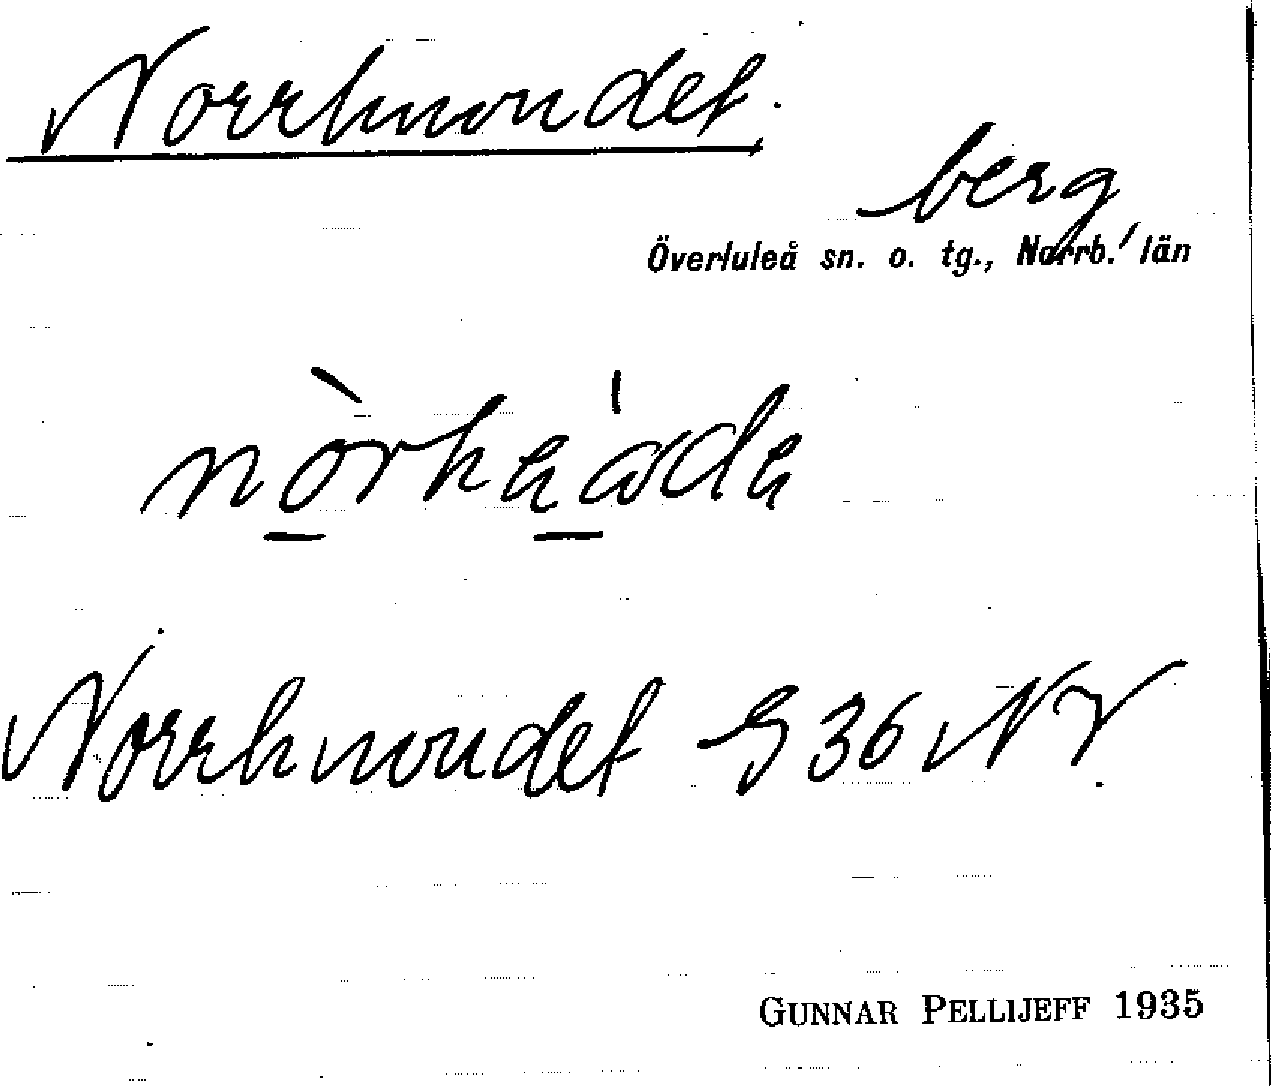 Norrhuvudet.
berg
Överluleå sn. o. tg., Norrb. län
Norrhuvudet G 36 NV.
GUNNAR PELLIJEFF 1935